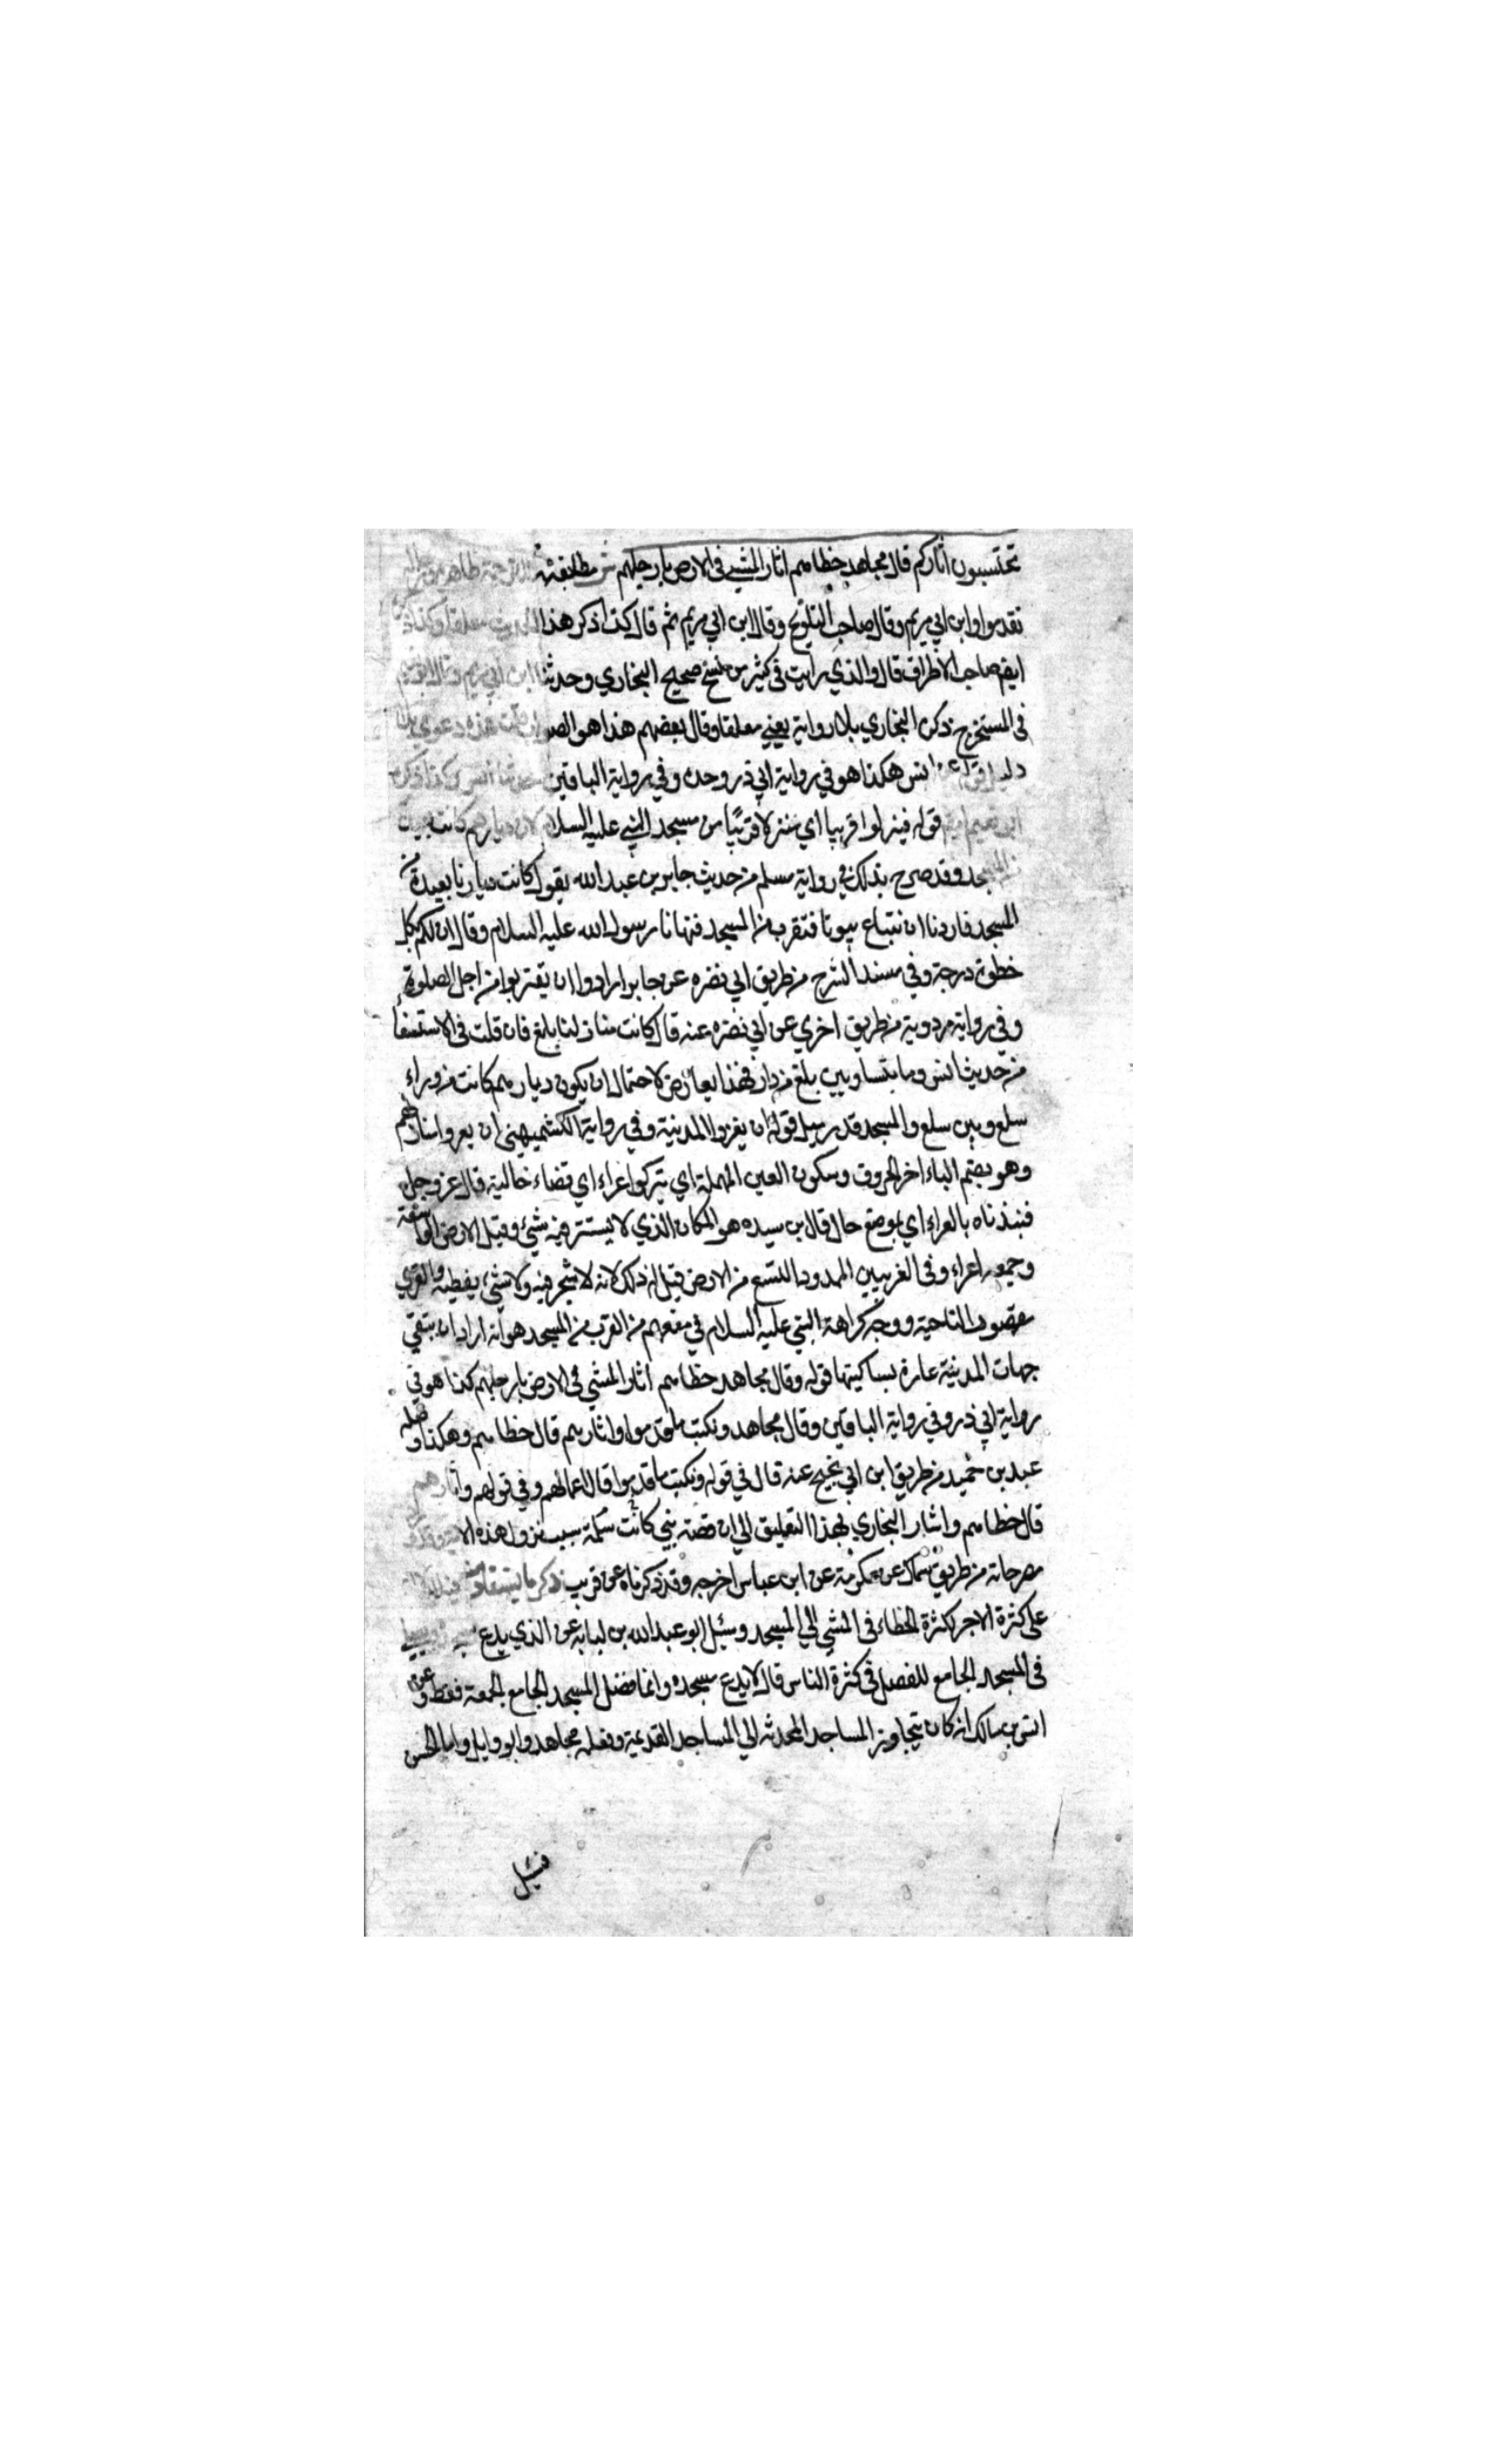 تحتسبون اثاركم قال مجاهد خطاهم اثار المشي في الارض بارجلهم ش مطابقته للترجمة ظاهرة
تقدموا وابن ابي مريم وقال صاحب التلويح وقال ابن ابي مريم ثم قال كذا ذكر هذا الحديث معلقا وكذا ذكره
ايضم صاحب الاطراف قال والذي رايت في كثير من نسخ صحيح البخاري وحدثنا ابن ابي مريم وقال ابو نعيم
في المستخرج ذكره البخاري بلا رواية يعني معلقا وقال بعضهم هذا هو الصواب قلت هذه دعوى بلا
دليل قوله عن انس هكذا هو في رواية ابي ذر وحده وفي رواية الباقين حدثنا انس وكذا ذكره
ابو نعيم ايضم قوله فينزلوا قريبا اي منزلا قريبا من مسجد النبي عليه السلام لان ديارهم كانت بعيدة
من المسجد وقد صرح بذلك في رواية مسلم من حديث جابر بن عبد الله يقول كانت ديارنا بعيدة من
المسجد فاردنا ان نبتاع بيوتا فنقرب من المسجد فنهانا رسول الله عليه السلام وقال ان لكم بكل
خطوة درجة وفي مسند السرح من طريق ابي نضره عن جابر ارادوا ان يقتربوا من اجل الصلوة
وفي رواية مردوية من طريق اخري عن ابي نضره عنه قال كانت منازلنا بلغ فان قلت في الاستسقا
من حديث انس وما بتساوبين بلغ من دار فهذا يعارض لاحتمال ان يكون ديارهم كانت من وراء
سلع وبين سلع والمسجد قدر ميل قوله ان يعروا المدينة وفي رواية الكشميهني ان يعروا منازلهم
وهو بضم الباء اخر الحروف وسكون العين المهملة اي يتركوا عراء اي فضاء خالية قال عز وجل
فنبذناه بالعراء اي بموضع خال قال بن سيده هو المكان الذي لا يستتر فيه شيئ وقيل الارض الواسعة
وجمعه اعراء وفي الغريبين الممدود المتسع من الارض قيل له ذلك لانه لا شجر فيه ولا شيئ يغطيه والعري
مقصورا الناحية ووجه كراهة النبي عليه السلام في منعهم من القرب من المسجد هو انه اراد ان يبقي
جهات المدينة عامرة بساكنيها قوله وقال مجاهد خطاهم اثار المشي في الارض بارجلهم كذا هو في
رواية ابي ذر وفي رواية الباقين وقال مجاهد ونكتب ما قدموا واثارهم قال خطاهم وهكذا وصله
عبد بن حميد من طريق ابن ابي نجيح عنه قال في قوله ونكتب ما قدموا قال اعمالهم وفي قولهم واثارهم
قال خطاهم واشار البخاري بهذا التعليق الي ان قصة بني كانت سلمة سبب نزول هذه الاية وقد ورد
مصرحا به من طريق سماك عن عكرمة عن ابن عباس اخرجه وقد ذكرناه عن قريب ذكر ما يستفاد منه فيه الدلالة
على كثرة الاجر لكثرة الخطاء في المشي الي المسجد وسئل ابو عبد الله بن لبابه عن الذي يدع مسجده ويصلي
في المسجد الجامع للفضل في كثرة الناس قال لا يدع مسجده وانما فضل المسجد الجامع الجمعة فقط وعن
انس بن مالك انه كان يتجاوز المساجد المحدثه الي المساجد القديمة وفعله مجاهد وابو وايل واما الحسن
فسئل